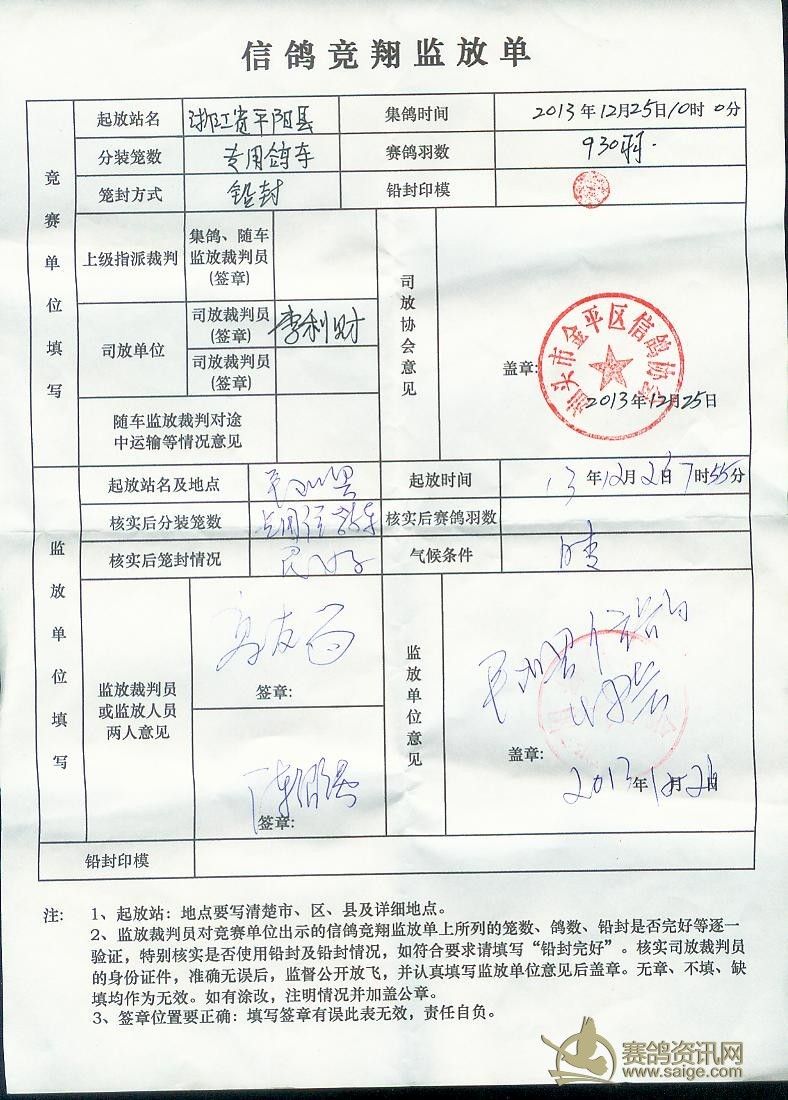 信鸽竞翔监放单
竞赛单位填写
起放站名 浙江省平阳县 集鸽时间 2013年12月25日10时0分
分装笼数 专用鸽车 赛鸽羽数 930羽.
笼封方式 铅封 铅封印模
上级指派裁判
集鸽、随车
监放裁判员
(签章)
司放单位
司放裁判员
(签章)
李利财
司放裁判员
(签章)
随车监放裁判对途
中运输等情况意见
司放协会意见
汕头市金平区信鸽协会
盖章:
2013年12月25日
监放单位填写
起放站名及地点 起放时间 13年12月26日7时55分
核实后分装笼数 核实后赛鸽羽数
核实后笼封情况 良好 气候条件 晴
监放裁判员
或监放人员
两人意见
签章:
签章:
监放单位意见
盖章:
2013年12月26日
铅封印模
注:
1、起放站：地点要写清楚市、区、县及详细地点。
2、监放裁判员对竞赛单位出示的信鸽竞翔监放单上所列的笼数、鸽数、铅封是否完好等逐一
验证，特别核实是否使用铅封及铅封情况，如符合要求请填写“铅封完好”。核实司放裁判员
的身份证件，准确无误后，监督公开放飞，并认真填写监放单位意见后盖章。无章、不填、缺
填均作为无效。如有涂改，注明情况并加盖公章。
3、签章位置要正确：填写签章有误此表无效，责任自负。
赛鸽资讯网
www.saige.com